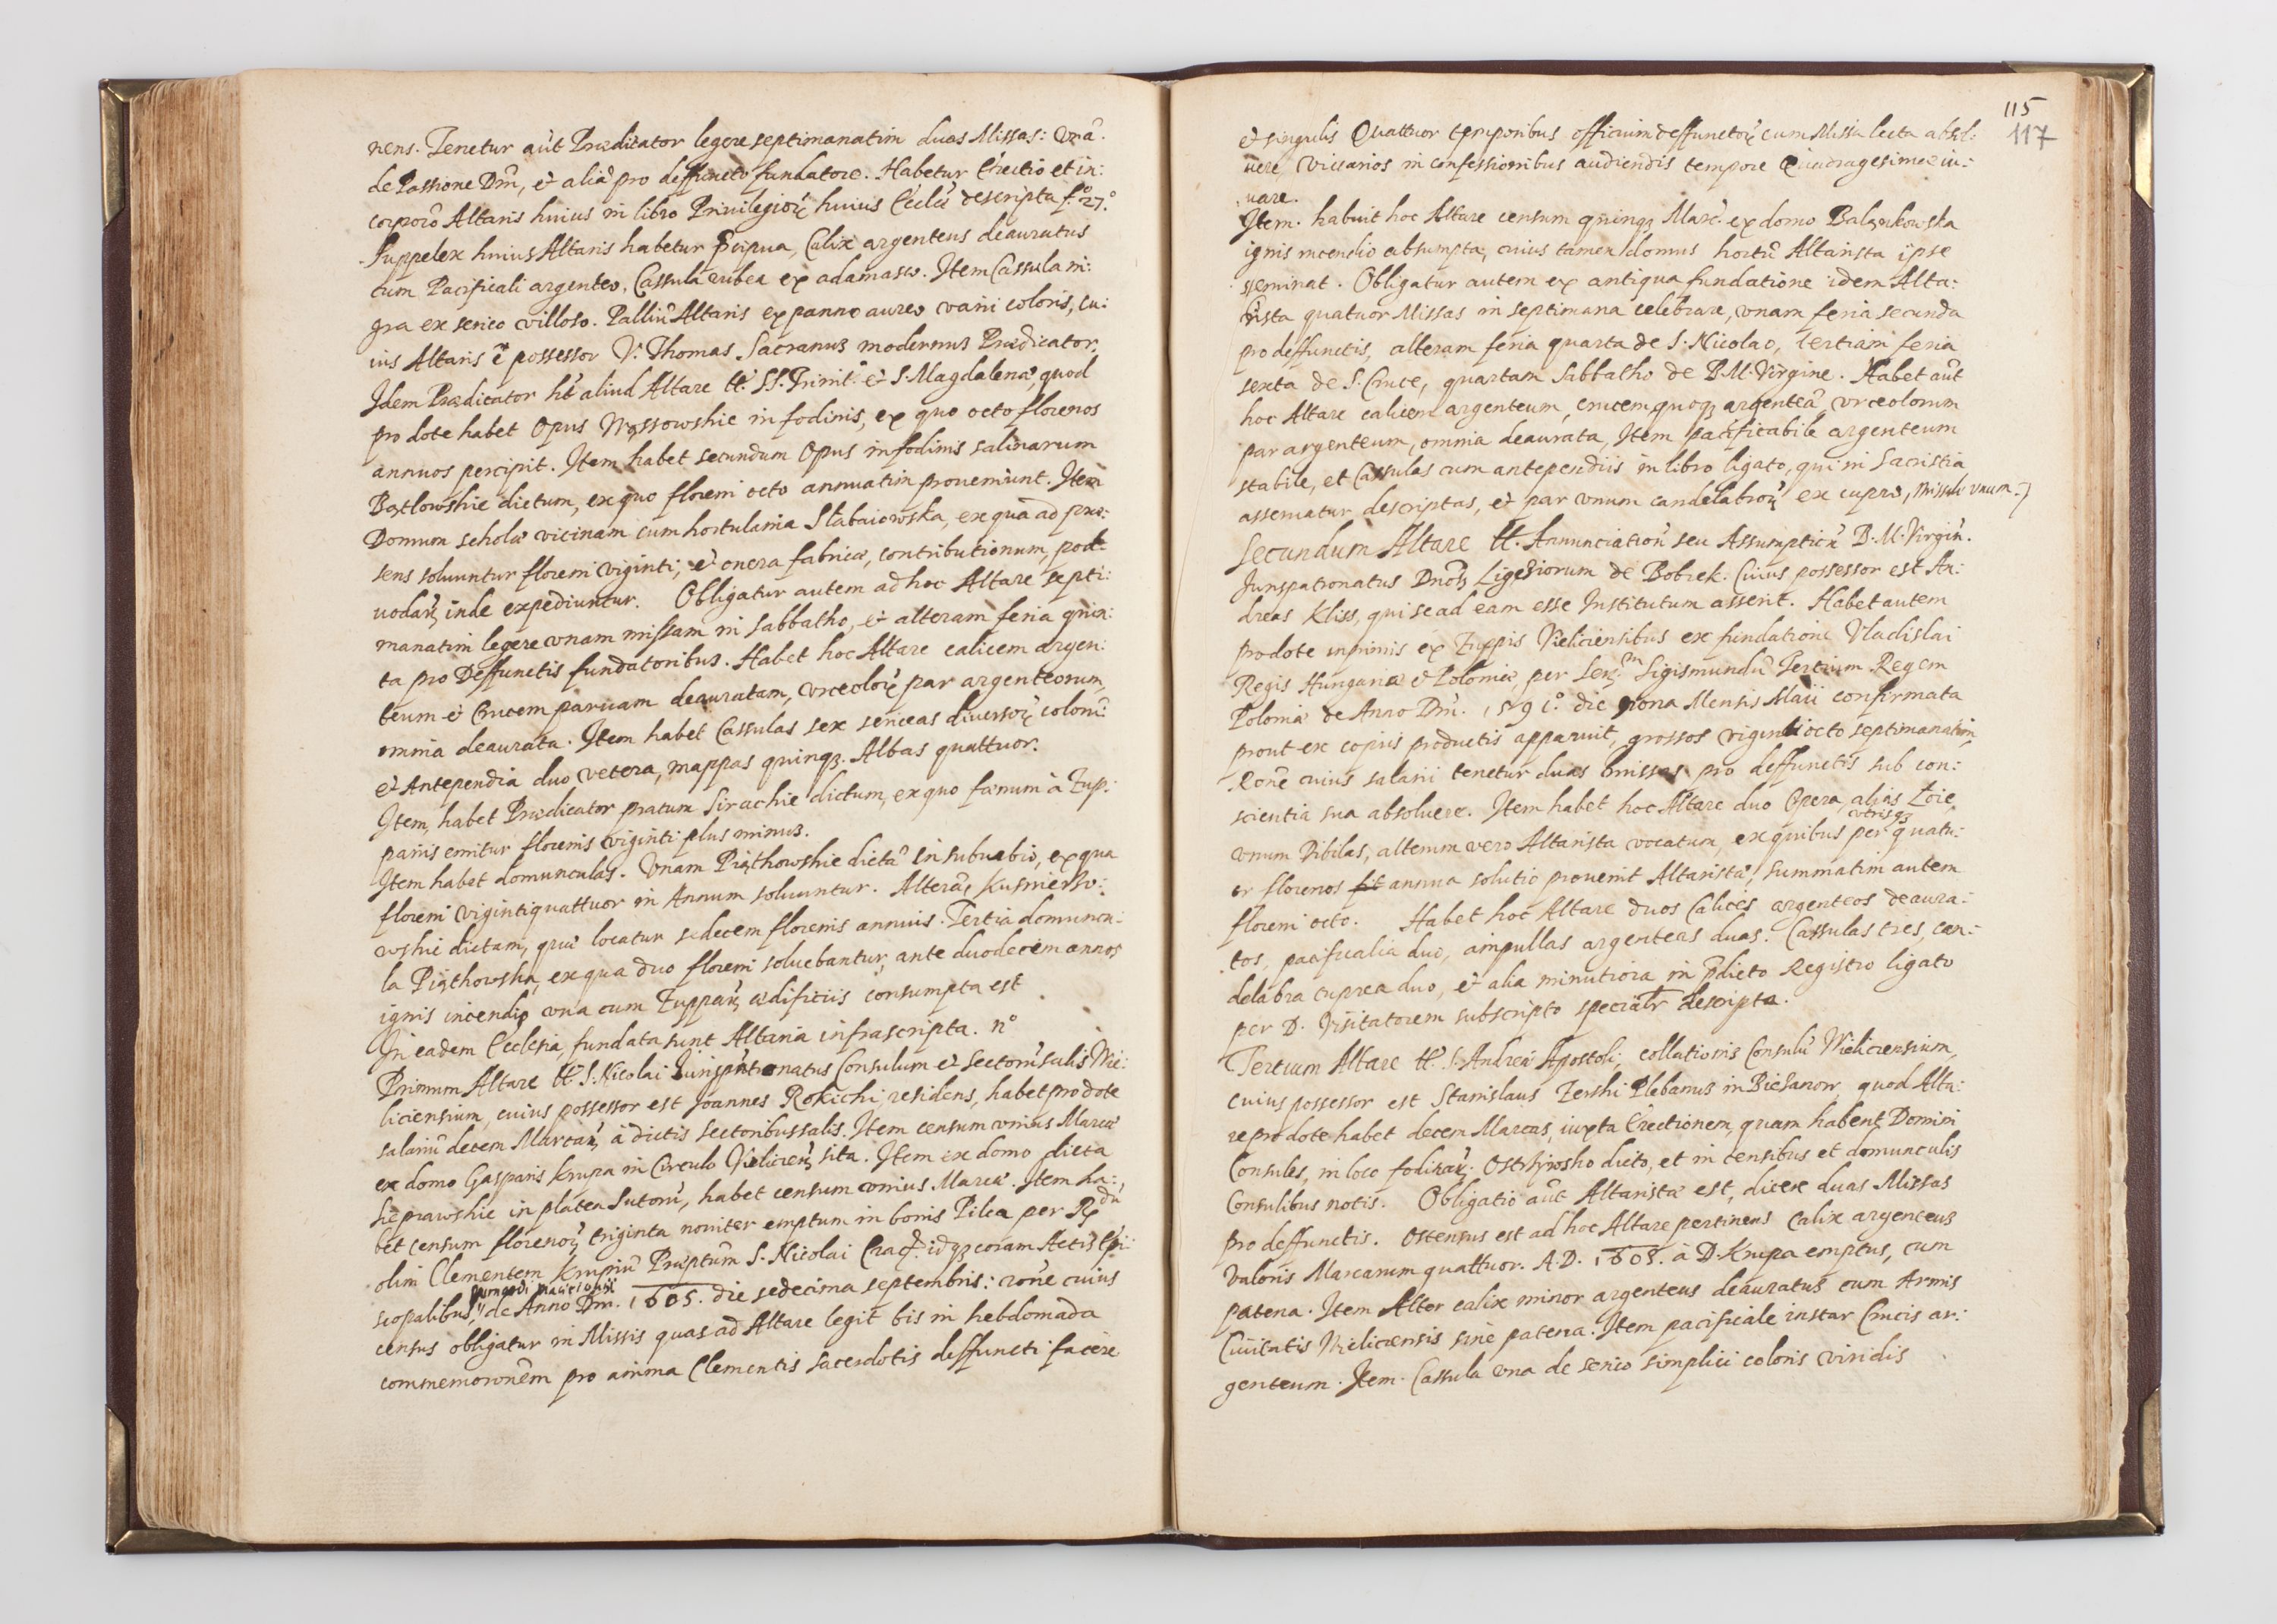 nens. Tenetur aūt Prædicator legere septimanatim duas Missas: Vnā.
de Passione Dnī, et aliā pro deffuncto fundatore. Habetur Erectio et in:
corporō Altaris huius in libro Privilegiorų huius Ecclīæ descripta f.° 27.°
Suppelex huius Altaris habetur p̄cipua, Calix argenteus deauratus
cum Pacificali argenteo, Cassula rubea ex adamasco. Item Cassula ni:
gra ex serico villoso. Palliū Altaris ex panno aureo varii coloris, cu:
ius Altaris ē possessor V. Thomas Sacranus modernus Prædicator.
Idem Prædicator hēt aliud Altare tt. SS. Trinit. et S. Magdalenæ, quod
pro dote habet Opus Wąssowskie in fodinis, ex quo octo florenos
annuos percipit. Item habet secundum Opus in fodinis salinarum
Bątlowskie dictum, ex quo floreni octo annuatim proveniunt. Item
Domum scholæ vicinam cum hortulania Słabaiowska, ex qua ad præ:
sens solvuntur floreni viginti, et onera fabricæ, contributionum, pod:
vodarų inde expediuntur. Obligatur autem ad hoc Altare septi:
manatim legere vnam missam in Sabbatho, et alteram feria quin:
ta pro Deffunctis fundatoribus. Habet hoc Altare calicem argen:
teum et Crucem parvam deauratam, vrceolorų par argenteorum,
omnia deaurata. Item habet Cassulas sex sericeas diversorų colorū.
et Antependia duo vetera, mappas quinqȝ. Albas quattuor.
Item, habet Prædicator pratum Sirachie dictum, ex quo fænum à Zup:
pariis emitur florenis viginti plus minus.
Item habet domunculas. Vnam Piątkowskie dictā in suburbio, ex qua
floreni vigintiquattuor in Annum solvuntur. Alterā, Kusnierzo:
wskie dictam, quæ locatur sedecem florenis annuis. Tertia domuncu:
la Piątkowska, ex qua duo floreni solvebantur, ante duodecem annos
ignis incendio vna cum Zupparų ædificiis consumpta est.
In eadem Ecclesia, fundata sunt Altaria infrascripta. n°
Primum Altare tt. S. Nicolai Iurispatronatus Consulum et Sectorū salis Wie:
liciensium, cuius possessor est Joannes Rokicki residens, habet pro dote
salariū decem Marcarų à dictis sectoribus salis. Item censum vnius Marcæ
ex domo Gasparis Krupa in Circulo Vieliciensi sita. Item ex domo dicta
Sieprawskie in platea Sutorū, habet censum vnius Marcæ. Item ha:
bet censum florenorų triginta noviter emptum in bonis Pilca per R.
olim Clementem Krupiū Præptūm S. Nicolai Crac. idqȝ coram Actis Epi:
scopalibus, de Anno Dnī. 1605. die sedecima septembris: rōne cuius
census obligatur in Missis quas ad Altare legit bis in hebdomada
commemorōnēm pro anima Clementis sacerdotis deffuncti facere
115
117
et singulis Quattuor temporibus officium deffunctorų cum Missa lecta absol:
vere vicarios in confessionibus audiendis tempore Quadragesimæ iu:
uare.
Item. habuit hoc Altare censum quinqȝ Marc. ex domo Baląskowska
ignis incendio absumpta, cuius tamen domus hortū Altarista ipse
seminat. Obligatur autem ex antiqua fundatione idem Alta:
rista quatuor Missas in septimana celebrare, vnam feria secunda
pro deffunctis, alteram feria quarta de S. Nicolao, tertiam feria
sexta de S. Cruce, quartam Sabbatho de B. M. Virgine. Habet aūt
hoc Altare calicem argenteum, crucem quoqȝ argenteā, vrceolorum
par argenteum, omnia deaurata, Item pacificabile argenteum
stabile, et Cassulas cum antependiis in libro ligato, qui in Sacristia
asservatur descriptas, et par vnum candelabrorų ex cupro, Missale vnum.
Secundum Altare tt. Annunciationū seu Assumptionū B. M. Virgin.
Iurispatronatus Dnorų Ligeziorum de Bobrek. Cuius possessor est An:
dreas Kliss, qui se ad eam esse Institutum asserit. Habet autem
pro dote inprimis ex Zuppis Vieliciensibus ex fundatione Vladislai
Regis Hungariæ et Poloniæ, per Ser.m Sigismundū Tertium Regem
Poloniæ de Anno Dnī. 1591.° die nona Mensis Maii confirmata
prout ex copiis productis apparuit, grossos viginti octo septimanatim
Rōne cuius salarii tenetur duas missas pro deffunctis sub con:
scientia sua absolvere. Item habet hoc Altare duo Opera, alias Zoie
vnum Bibilas, alterum vero Altarista vocatum, ex quibus per vtrisqȝ quatu:
or florenos fit annua solutio provenit Altaristæ, summatim autem
floreni octo. Habet hoc Altare duos Calices argenteos deaura:
tos, pacificalia duo, ampullas argenteas duas. Cassulas tres, can:
delabra cuprea duo, et alia minutiora in p̄dicto Registro ligato
per D. Visitatorem subscripto specialr descripta.
Tertium Altare tt. S. Andreæ Apostoli, collationis Consulū Wieliciensium,
cuius possessor est Stanislaus Zerski Plebanus in Biesanow, quod Alta:
re pro dote habet decem Marcas, iuxta Erectionem, quam habent Domini
Consules, in loco fodinarų. dicto, et in censibus et domunculis
Consulibus notis. Obligatio aūt Altaristæ est, dicere duas Missas
pro deffunctis. Ostensus est ad hoc Altare pertinens Calix argenteus
valoris Marcarum quattuor. A. D. 1605. à D. Krupa emptus, cum
patena. Item Alter calix minor argenteus deauratus cum Armis
Civitatis Vieliciensis sine patena. Item pacificale instar Crucis ar:
genteum. Item. Cassula vna de serico simplici coloris viridis